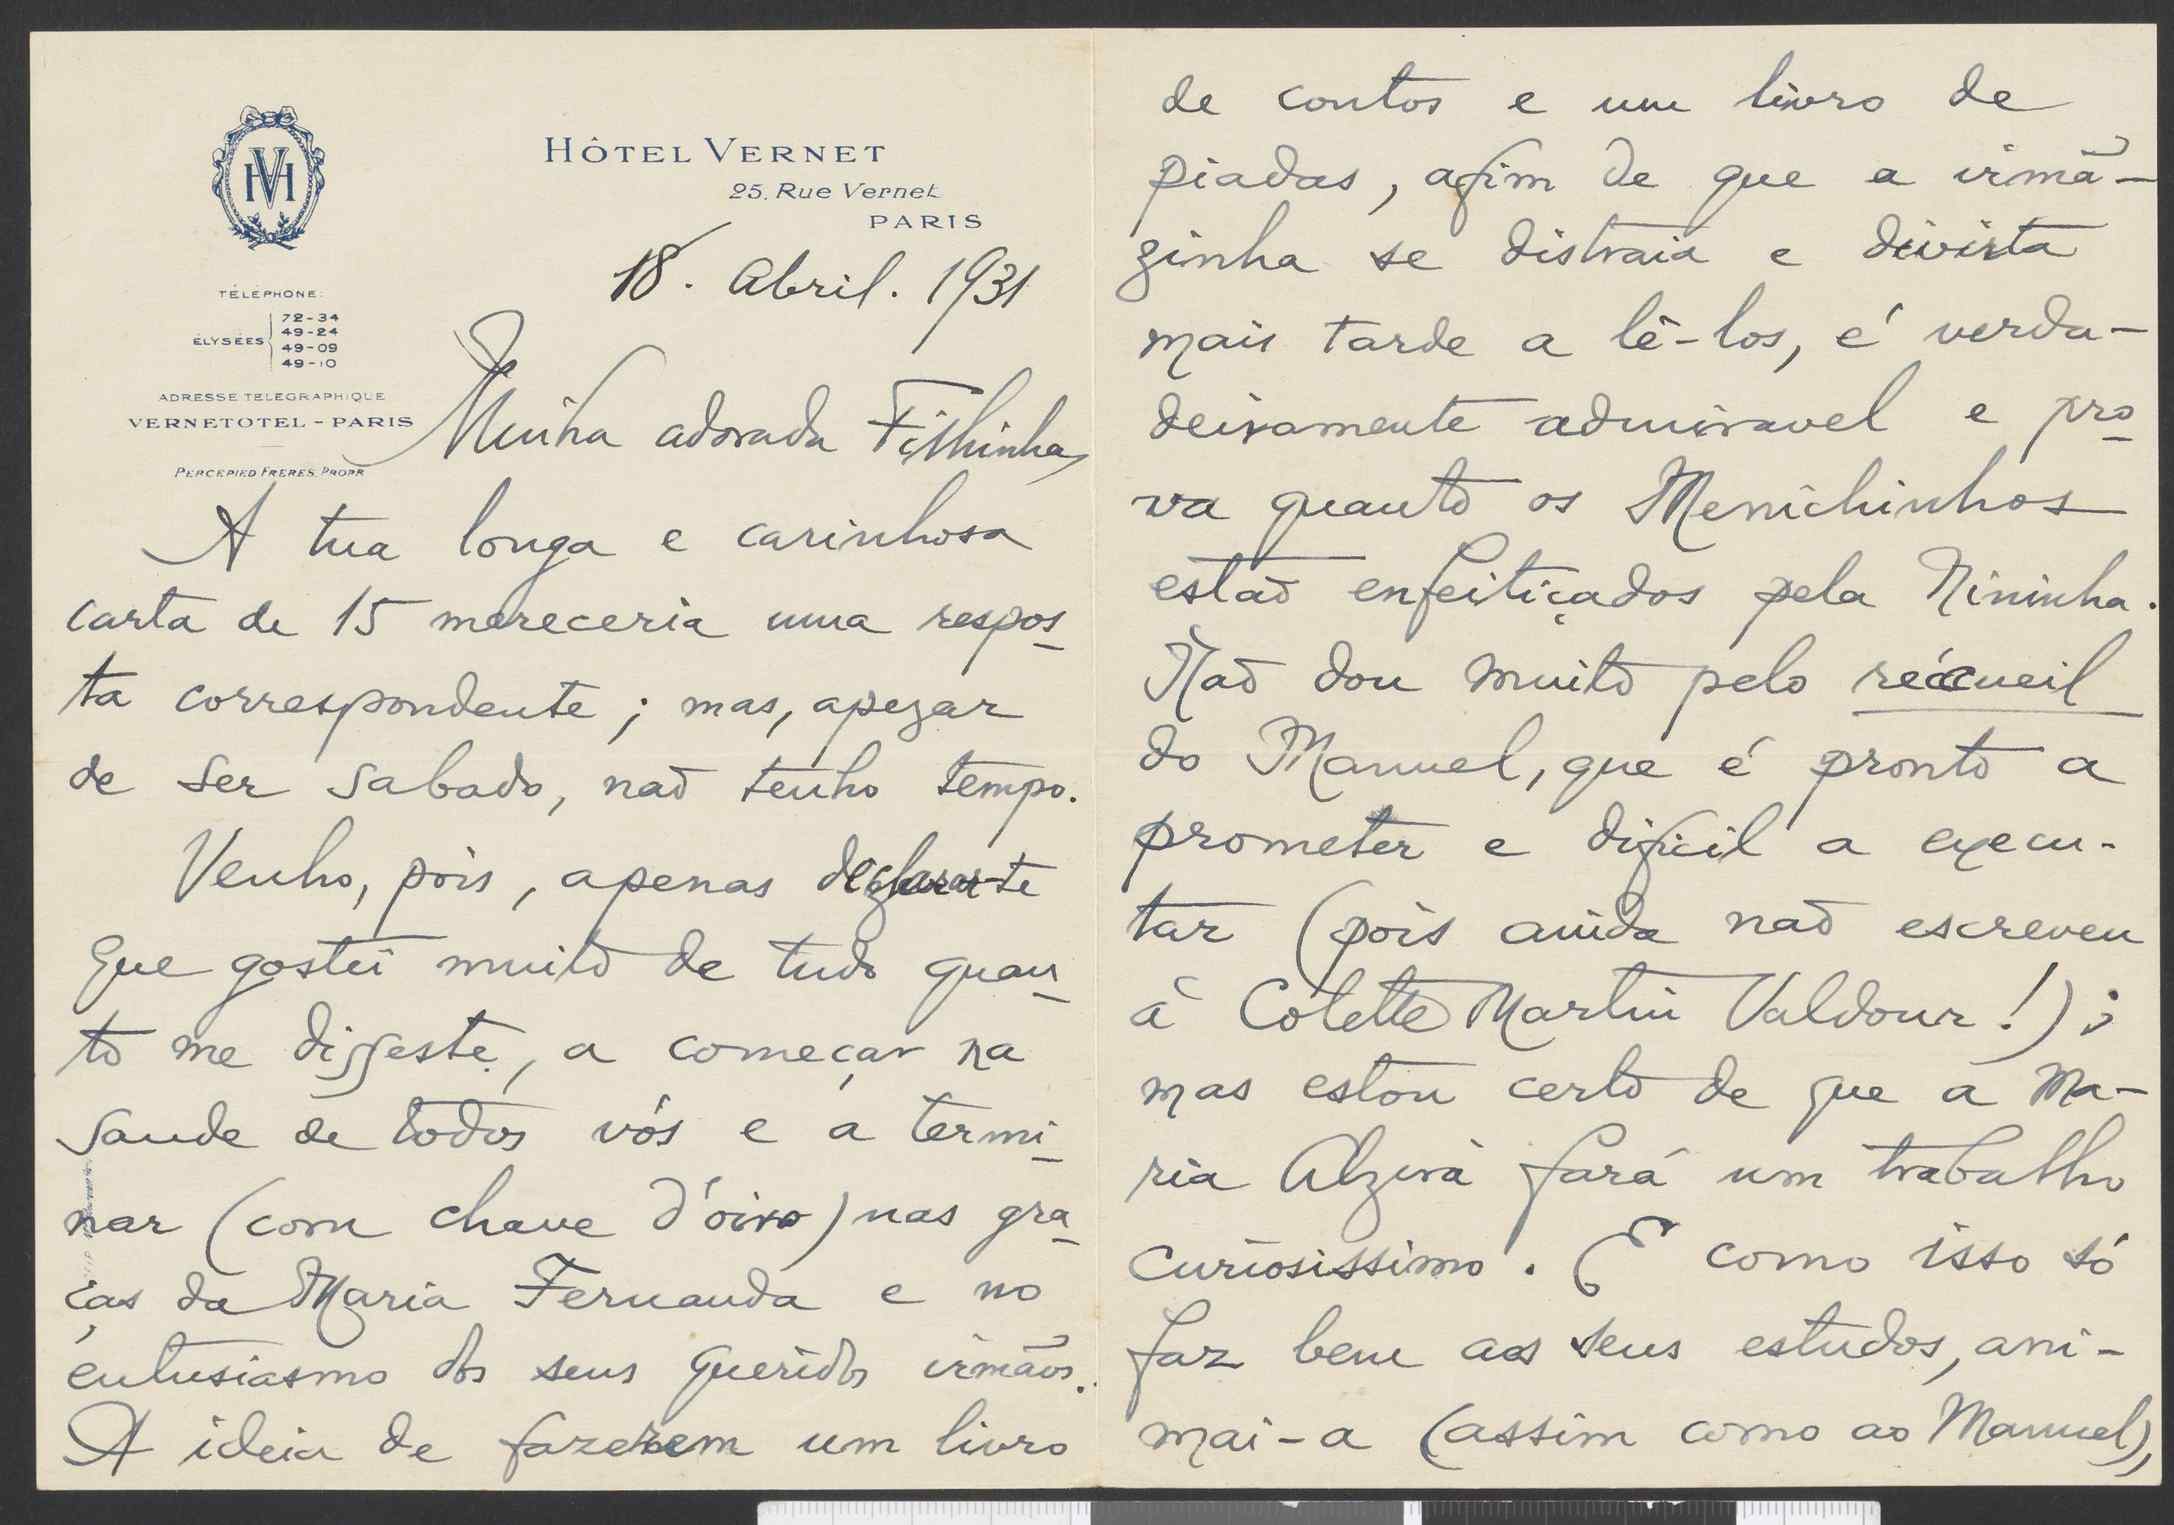 HÔTEL VERNET
25, Rue Vernet
PARIS
TÉLÉPHONE:
ÉLYSÉES
72-34
49-24
49-09
49-10
ADRESSE TÉLÉGRAPHIQUE
VERNETOTEL - PARIS
PERCEPIED FRÈRES, PROPR
18. Abril. 1931
Minha adorada Filhinha,
A tua longa e carinhosa
carta de 15 mereceria uma respos-
ta correspondente; mas, apezar
de ser sabado, não tenho tempo.
Venho, pois, apenas declarar-te
que gostei muito de tudo quan-
to me disseste, a começar na
saude de todos vós e a termi-
nar (com chave d'óiro) nas gra-
ças da Maria Fernanda e no
entusiasmo dos seus queridos irmãos.
A ideia de fazerem um livro
de contos e um livro de
piadas, afim de que a irmã-
zinha se distraia e divirta
mais tarde a lê-los, é verda-
deiramente admiravel e pro-
va quanto os Menichinhos
estão enfeitiçados pela Nininha.
Não dou muito pelo récueil
do Manuel, que é pronto a
prometer e dificil a execu-
tar (pois ainda não escreveu
à Colette Martin Valdour!);
mas estou certo de que a Ma-
ria Alzira fará um trabalho
curiosissimo. E como isso só
faz bem aos seus estudos, ani-
mai-a (assim como ao Manuel),